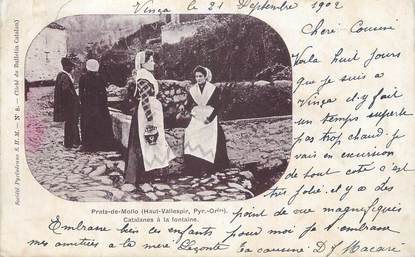 Vinça le 21 Septembre 1902
Chère Cousine
Voilà huit jours
que je suis a
Vinça il y fait
un temps superbe
pas trop chaud. je
vais en excursion
de tout coté c'est
très jolie et y a des
point de vue magnefiques
Embrasse bien ces enfants pour moi je t'embrasse
mes amitiées a la mère ta cousine D
Prats-de-Mollo (Haut-Vallespir, Pyr.-Orles)
Catalanes à la fontaine.
Société Pyrénéenne S. H. M. — N° 8. — Cliché du Bulletin Catalan)